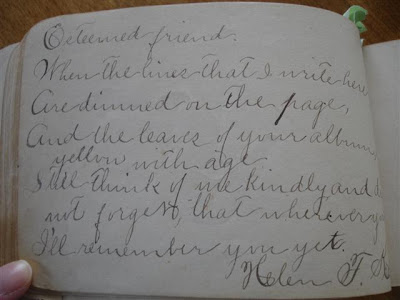 Esteemed friend.
When the lines that I write here
Are dimmed on the page,
And the leaves of your album
yellow with age.
Still think of me kindly and
not forget, that wherever
I'll remember you yet.
Helen F.